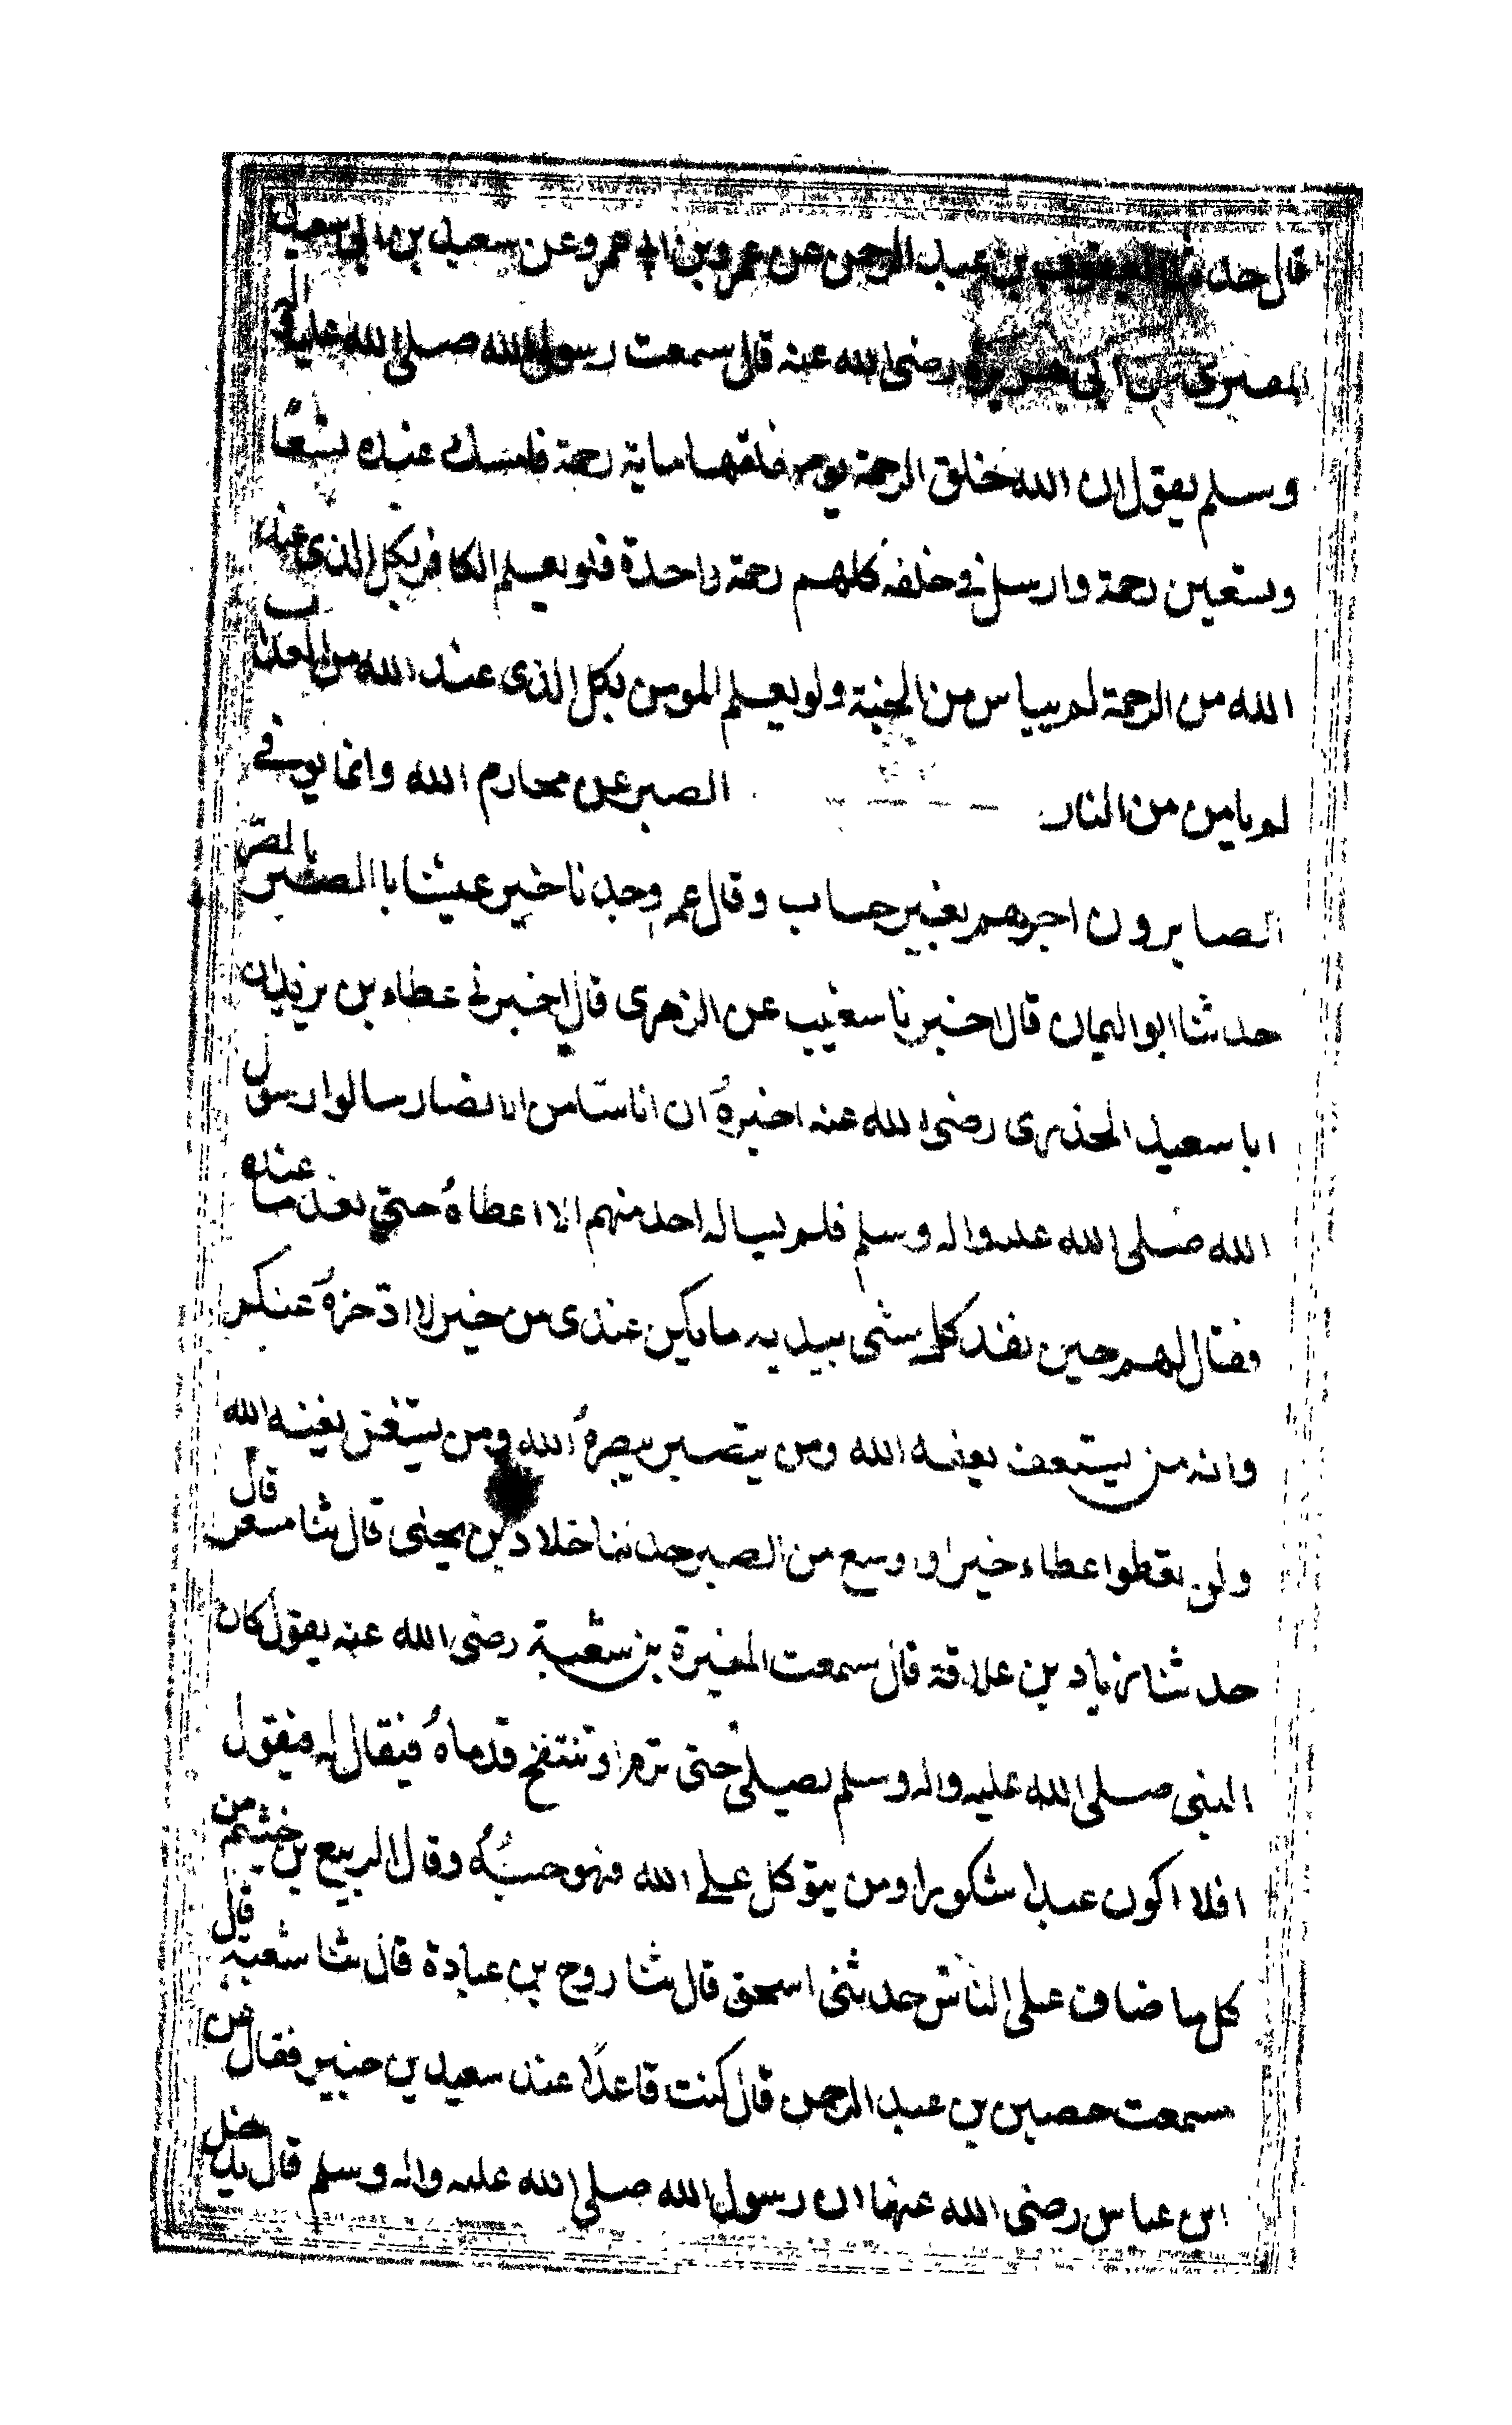 قال حدثنا يعقوب بن عبد الرحمن عن عمرو بن ابي عمرو عن سعيد بن ابي سعيد
المصري عن ابي هريرة رضى الله عنه قال سمعت رسول الله صلى الله عليه واله
وسلم يقول ان الله خلق الرحمة يوم خلقها ماية رحمة فامسك عنده تسعًا
وتسعين رحمة وارسل في خلقه كلهم رحمة واحدة فلو يعلم الكافر بكل الذى عند
الله من الرحمة لم ييياس من الجنة ولو يعلم المومن بكل الذى عند الله من العذاب
لم يامن من النار الصبر عن محارم الله وانما يوفى
الصابرون اجرهم بغير حساب وقال عمر وجدنا خير عيشنا باالصبر بالصبر
حدثنا ابو اليمان قال اخبرنا شعيب عن الزهرى قال اخبرني عطاء بن يزيد ان
ابا سعيد الخذرى رضى الله عنه اخبرهُ ان اناسًا من الانصار سالوا رسول
الله صلى الله عليه واله وسلم فلم يساله احد منهم الا اعطاهُ حتى نفد ما عنده
فقال لهم حين نفد كل شى بيديه ما يكن عندى من خير لا ادّخرهُ عنكم
وانه من يستعف يعفه الله ومن يتصبر يصبرهُ الله ومن يستغن يغنه الله
ولن تعطوا عطاء خيرا و اوسع من الصبر حدثنا خلاد بن يحيى قال ثنا مسعر قال
حدثنا زياد بن علاقة قال سمعت المغيرة بن شعبة رضى الله عنه يقول كان
النبى صلى الله عليه واله وسلم يصلى حتى ترم او تنتفخ قدماهُ فيقال له فيقول
افلا اكون عبدا شكورا ومن يتوكل على الله فهو حسبُهُ وقال الربيع بن خثيم من
كل ما ضاق على الناس حدثنى اسحق قال ثنا روح بن عبادة قال ثنا شعبة قال
سمعت حصين بن عبد الرحمن قال كنت قاعدًا عند سعيد بن جبير فقال عن
ابن عباس رضى الله عنهما ان رسول الله صلى الله عليه واله وسلم قال يدخل